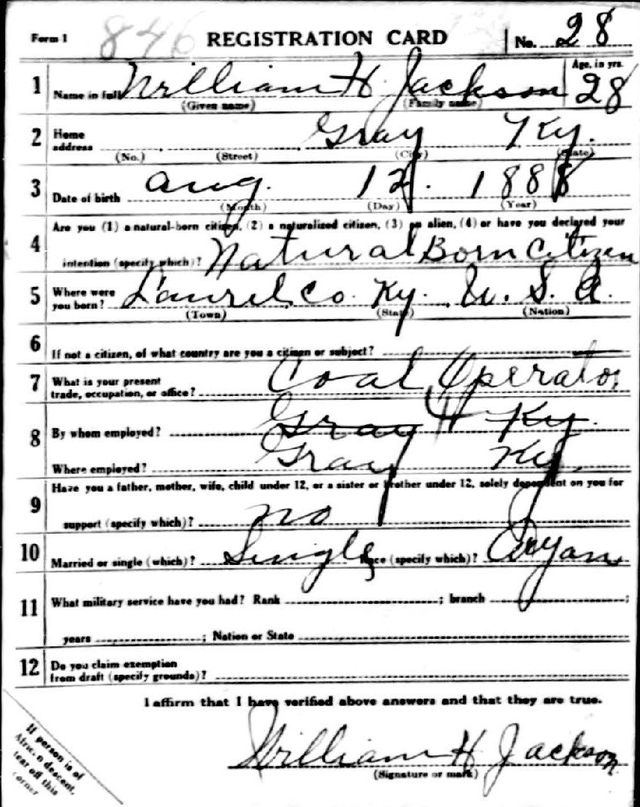 Form 1 846 REGISTRATION CARD No. 28
1 Name in full William H Jackson Age, in yrs. 28
(Given name) (Family name)
2 Home address Gray Ky.
(No.) (Street) (City) (State)
3 Date of birth Aug. 12. 1888
(Month) (Day) (Year)
4 Are you (1) a natural-born citizen, (2) a naturalized citizen, (3) an alien, (4) or have you declared your
intention (specify which)? Natural Born Citizen
5 Where were you born? Laurel Co. Ky. U. S. A.
(Town) (State) (Nation)
6 If not a citizen, of what country are you a citizen or subject?
7 What is your present trade, occupation, or office? Coal Operator
8 By whom employed? Gray Ky.
Where employed? Gray Ky.
9 Have you a father, mother, wife, child under 12, or a sister or brother under 12, solely dependent on you for
support (specify which)? no
10 Married or single (which)? Single Race (specify which)? Aryan
11 What military service have you had? Rank ; branch ;
years ; Nation or State
12 Do you claim exemption
from draft (specify grounds)?
I affirm that I have verified above answers and that they are true.
William H Jackson
(Signature or mark)
If person is of
African descent,
tear off this
corner